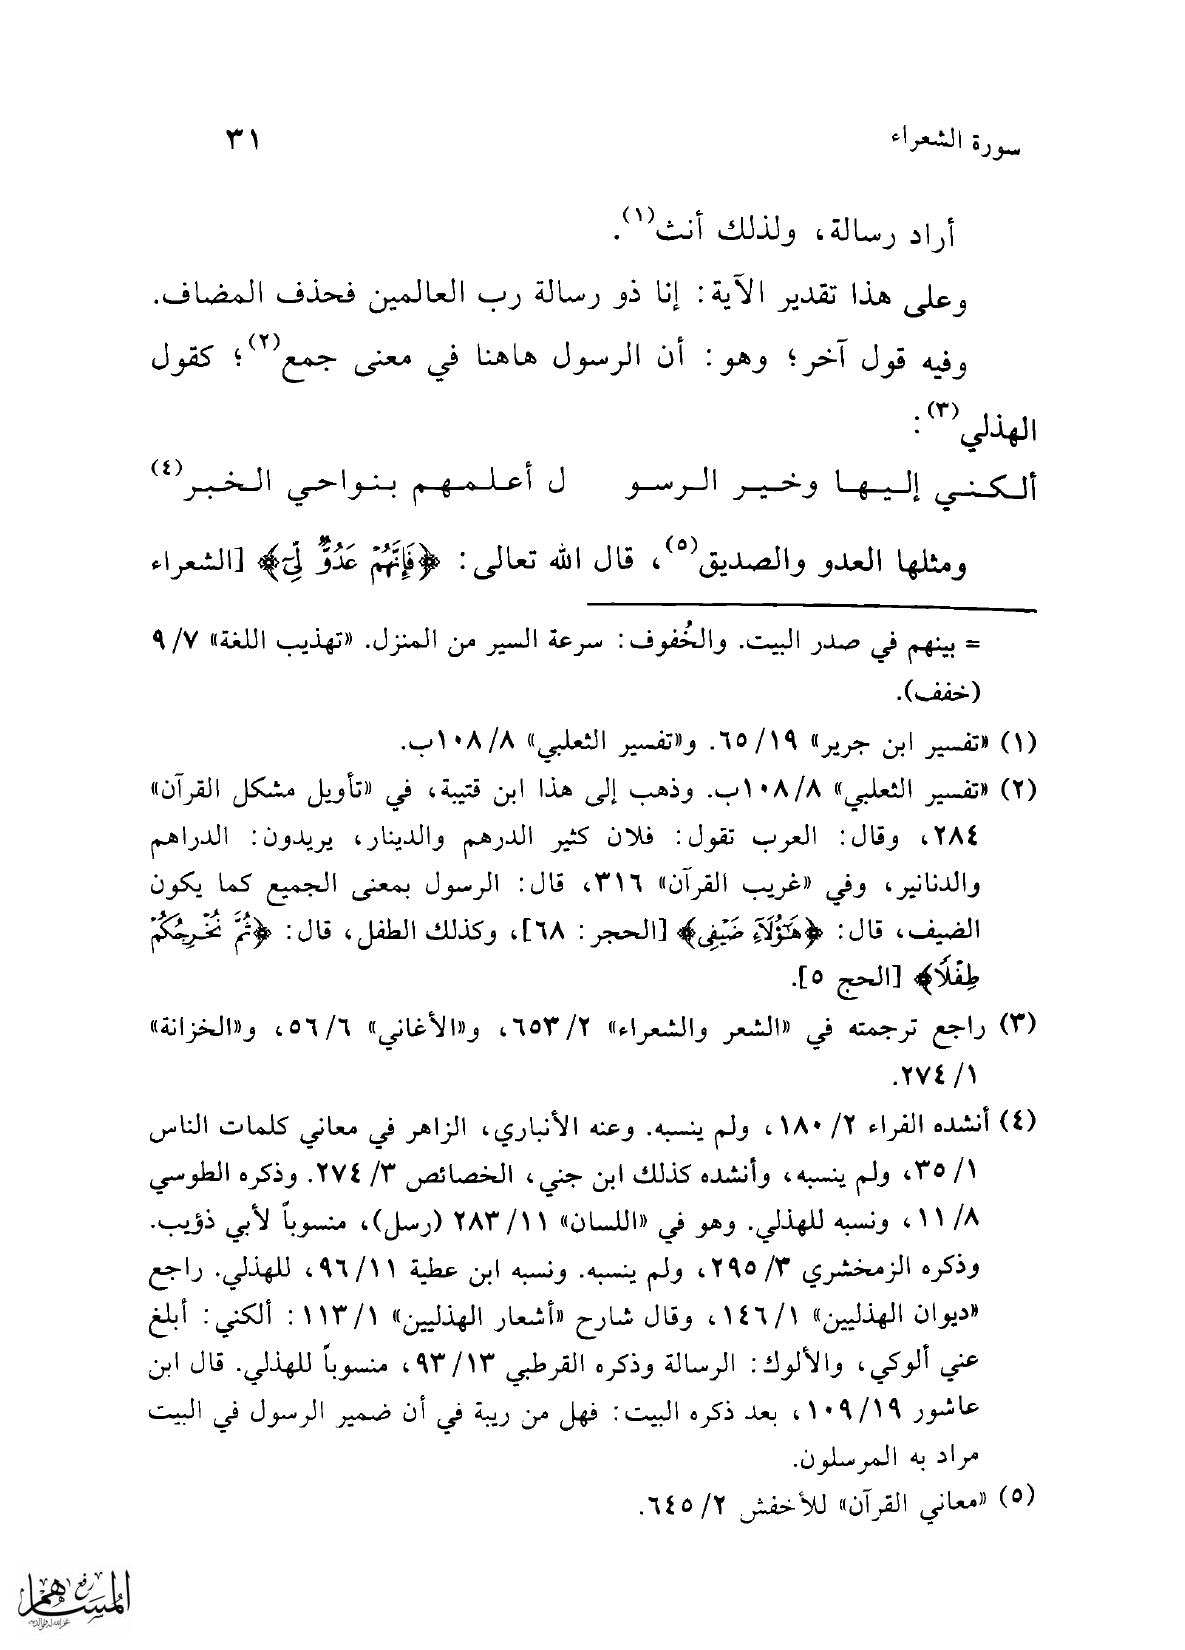 سورة الشعراء ٣١
أراد رسالة، ولذلك أنث(١).
وعلى هذا تقدير الآية: إنا ذو رسالة رب العالمين فحذف المضاف.
وفيه قول آخر؛ وهو: أن الرسول هاهنا في معنى جمع(٢)؛ كقول
الهذلي(٣):
ألـكـنـي إلـيـهـا وخـيـر الـرسـو ل أعـلـمـهـم بـنـواحـي الـخـبـر(٤)
ومثلها العدو والصديق(٥)، قال الله تعالى: ﴿فَإِنَّهُمْ عَدُوٌّ لِّيٓ﴾ [الشعراء
= بينهم في صدر البيت. والخُفوف: سرعة السير من المنزل. «تهذيب اللغة» ٧/ ٩
(خفف).
(١) «تفسير ابن جرير» ١٩/ ٦٥. و«تفسير الثعلبي» ٨/ ١٠٨ب.
(٢) «تفسير الثعلبي» ٨/ ١٠٨ب. وذهب إلى هذا ابن قتيبة، في «تأويل مشكل القرآن»
٢٨٤، وقال: العرب تقول: فلان كثير الدرهم والدينار، يريدون: الدراهم
والدنانير، وفي «غريب القرآن» ٣١٦، قال: الرسول بمعنى الجميع كما يكون
الضيف، قال: ﴿هَٰٓؤُلَآءِ ضَيْفِي﴾ [الحجر: ٦٨]، وكذلك الطفل، قال: ﴿ثُمَّ نُخْرِجُكُمْ
طِفْلًا﴾ [الحج ٥].
(٣) راجع ترجمته في «الشعر والشعراء» ٢/ ٦٥٣، و«الأغاني» ٦/ ٥٦، و«الخزانة»
١/ ٢٧٤.
(٤) أنشده الفراء ٢/ ١٨٠، ولم ينسبه. وعنه الأنباري، الزاهر في معاني كلمات الناس
١/ ٣٥، ولم ينسبه، وأنشده كذلك ابن جني، الخصائص ٣/ ٢٧٤. وذكره الطوسي
٨/ ١١، ونسبه للهذلي. وهو في «اللسان» ١١/ ٢٨٣ (رسل)، منسوباً لأبي ذؤيب.
وذكره الزمخشري ٣/ ٢٩٥، ولم ينسبه. ونسبه ابن عطية ١١/ ٩٦، للهذلي. راجع
«ديوان الهذليين» ١/ ١٤٦، وقال شارح «أشعار الهذليين» ١/ ١١٣: ألكني: أبلغ
عني ألوكي، والألوك: الرسالة وذكره القرطبي ١٣/ ٩٣، منسوباً للهذلي. قال ابن
عاشور ١٩/ ١٠٩، بعد ذكره البيت: فهل من ريبة في أن ضمير الرسول في البيت
مراد به المرسلون.
(٥) «معاني القرآن» للأخفش ٢/ ٦٤٥.
رفع
المساهم